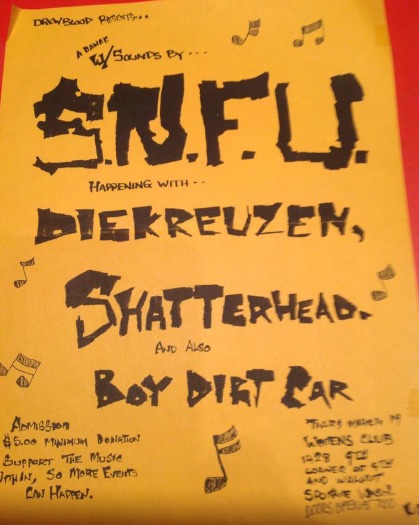 DREWBLOOD PRESENTS...
A DANCE
W/ SOUNDS BY...
S.N.F.U.
HAPPENING WITH..
DIEKREUZEN,
SHATTERHEAD.
AND ALSO
BOY DIRT CAR
ADMISSION
$5.00 MINIMUM DONATION
SUPPORT THE MUSIC
WITHIN, SO MORE EVENTS
CAN HAPPEN.
THURS MARCH 19
WOMENS CLUB
1428 9TH
CORNER OF 9TH
AND WALNUT
SPOKANE WASH.
DOORS OPEN @ 7:00